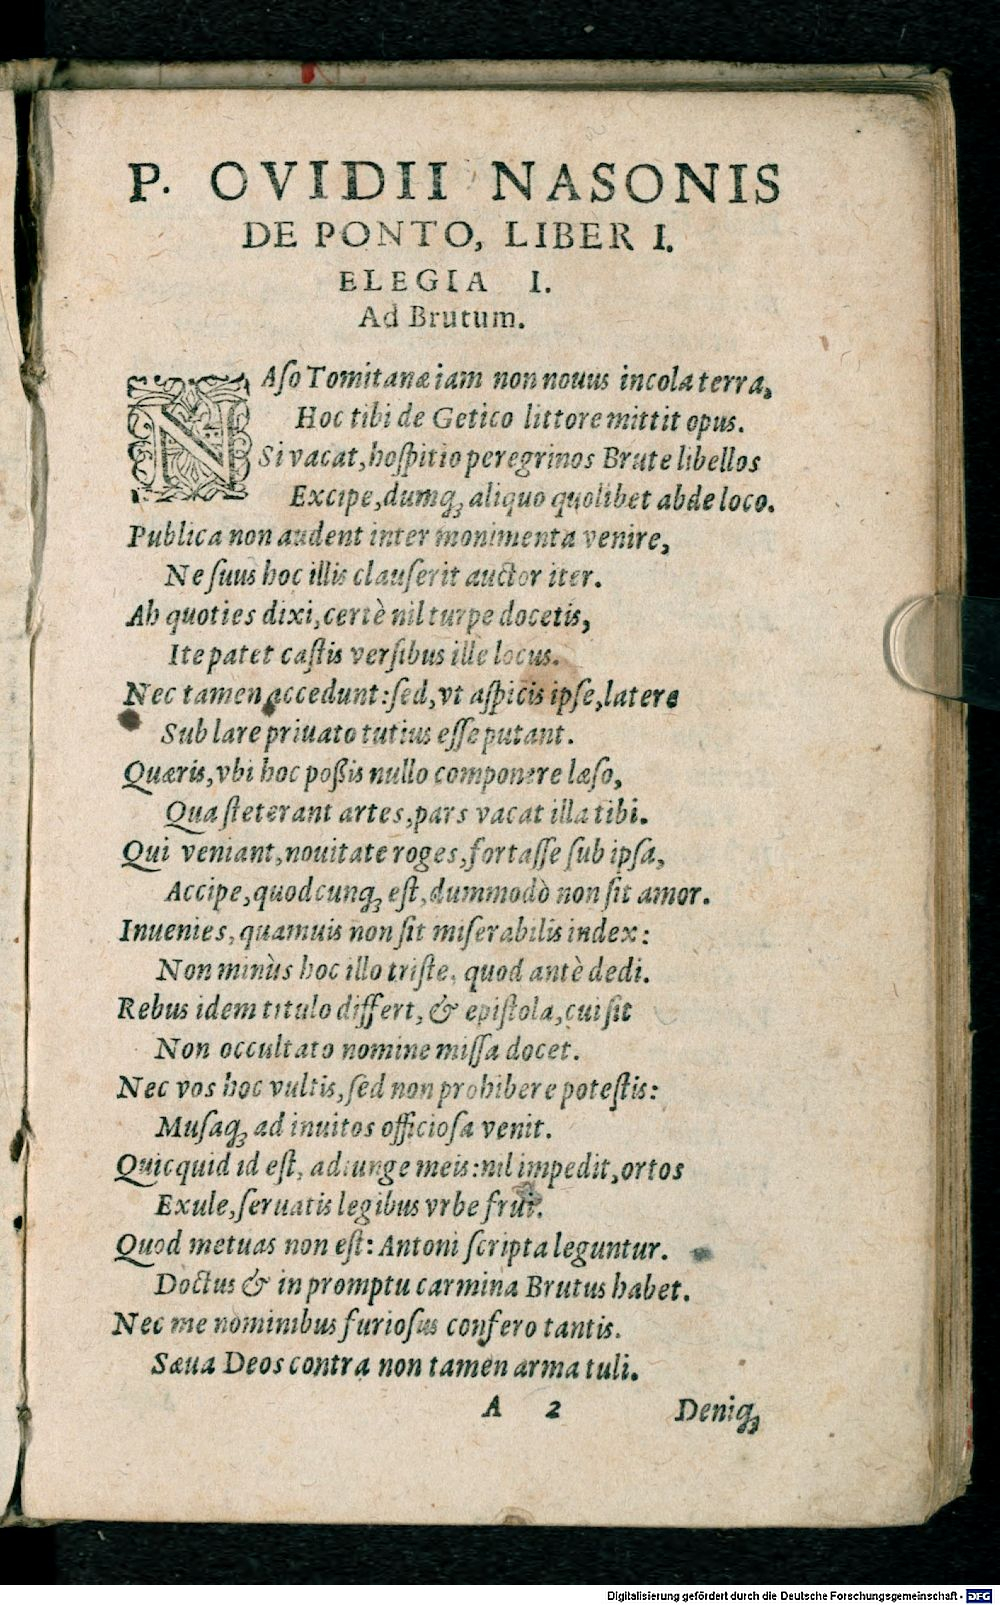 P. OVIDII NASONIS
DE PONTO, LIBER I.
ELEGIA I.
Ad Brutum.
NAſo Tomitanæ iam non nouus incola terra,
Hoc tibi de Getico littore mittit opus.
Si vacat, hoſpitio peregrinos Brute libellos
Excipe, dumq; aliquo quolibet abde loco.
Publica non audent inter monimenta venire,
Ne ſuus hoc illis clauſerit auctor iter.
Ah quoties dixi, certè nil turpe docetis,
Ite patet caſtis verſibus ille locus.
Nec tamen accedunt: ſed, vt aſpicis ipſe, latere
Sub lare priuato tutius eſſe putant.
Quæris, vbi hoc poßis nullo componere læſo,
Qua ſteterant artes, pars vacat illa tibi.
Qui veniant, nouitate roges, fortaſſe ſub ipſa,
Accipe, quodcunq; eſt, dummodò non ſit amor.
Inuenies, quamuis non ſit miſerabilis index:
Non minùs hoc illo triſte, quod antè dedi.
Rebus idem titulo differt, & epiſtola, cui ſit
Non occultato nomine miſſa docet.
Nec vos hoc vultis, ſed non prohibere poteſtis:
Muſaq; ad inuitos officioſa venit.
Quicquid id eſt, adiunge meis: nil impedit, ortos
Exule, ſeruatis legibus vrbe frui.
Quod metuas non eſt: Antoni ſcripta leguntur.
Doctus & in promptu carmina Brutus habet.
Nec me nominibus furioſus confero tantis.
Sæua Deos contra non tamen arma tuli.
A 2 Deniq;
Digitalisierung gefördert durch die Deutsche Forschungsgemeinschaft - DFG